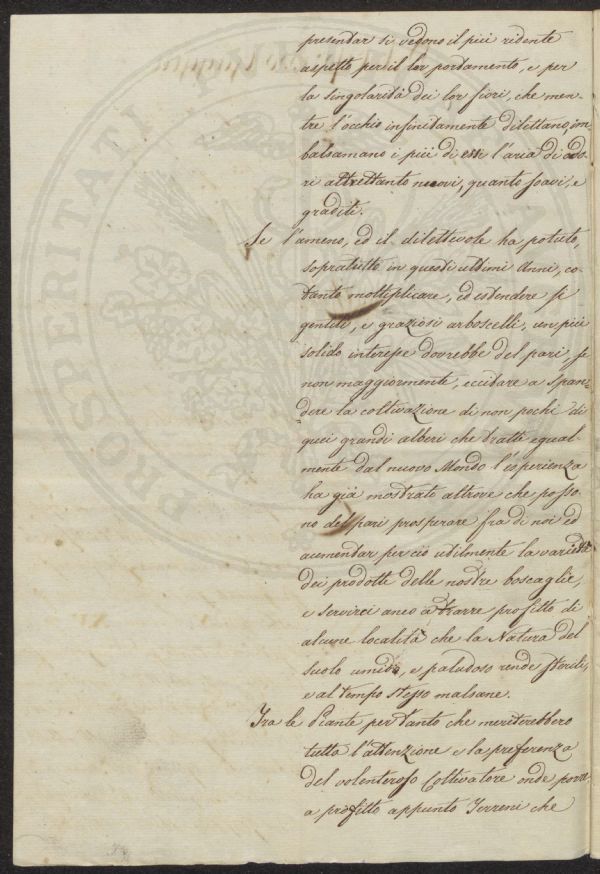 presentar si vedono il più ridente
aspetto per il lor portamento, e per
la singolarità dei lor fiori, che men-
tre l'occhio infinitamente dilettano, im-
balsamano i più di essi l'aria di odo-
ri altrettanto nuovi, quanto soavi, e
graditi.
Se l'ameno, ed il dilettevole ha potuto,
sopratutto in questi ultimi Anni, co-
tanto moltiplicare, ed estendere sì
gentili, e graziosi arboscelli, un più
solido interesse dovrebbe del pari, se
non maggiormente, eccitare a span=
=dere la coltivazione di non pochi di
quei grandi alberi che tratti egual-
mente dal nuovo Mondo l'esperienza
ha già mostrato altrove che posso-
no del pari prosperare fra di noi ed
aumentar perciò utilmente la varietà
dei prodotti delle nostre boscaglie,
e servirci anco a trarre profitto di
alcune località che la Natura del
suolo umido, e paludoso rende sterili,
e al tempo stesso malsane.
Fra le Piante pertanto che meriterebbero
tutta l'attenzione e la preferenza
del volenteroso Coltivatore onde porre
a profitto appunto Terreni che
PROSPERITATI